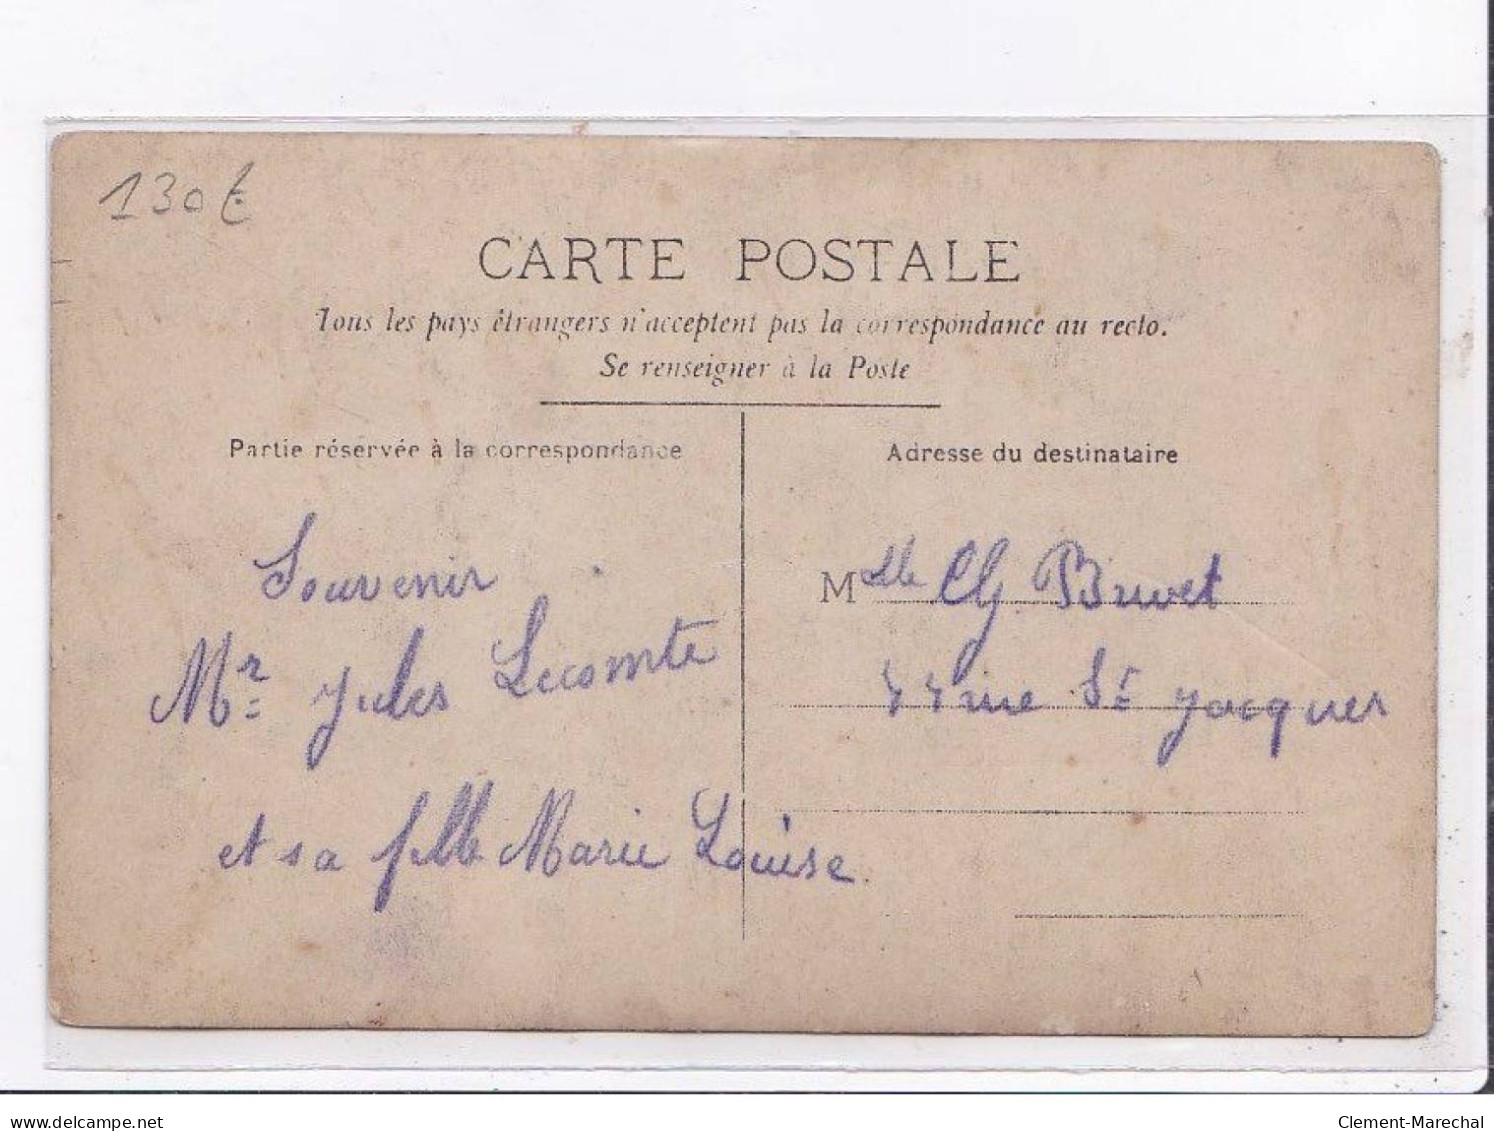 130€
CARTE POSTALE
Tous les pays étrangers n'acceptent pas la correspondance au recto.
Se renseigner à la Poste
Partie réservée à la correspondance
Souvenir
Mr Jules Lecomte
et sa fille Marie Louise
Adresse du destinataire
Mlle Bruvet
44 rue St Jacques
delcampe.net
Clement-Marechal